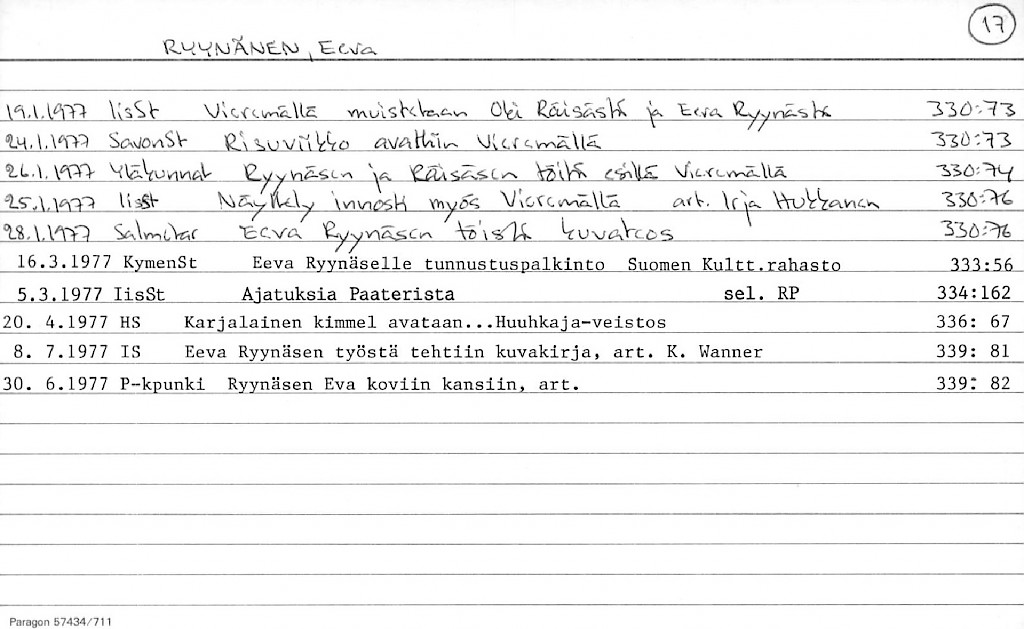 17
RYYNÄNEN, Eeva
19.1.1977 IisSt Vieremällä muistetaan Oki Räisästä ja Eeva Ryynästä 330:73
24.1.1977 SavonSt Risuviikko avattiin Vieremällä 330:73
26.1.1977 Yläkunnat Ryynäsen ja Räisäsen töitä esillä Vieremällä 330:74
25.1.1977 IisSt Näyttely innosti myös Vieremällä art. Irja Hukkanen 330:76
28.1.1977 Salmetar Eeva Ryynäsen töistä kuvateos 330:76
16.3.1977 KymenSt Eeva Ryynäselle tunnustuspalkinto Suomen Kultt.rahasto 333:56
5.3.1977 IisSt Ajatuksia Paaterista sel. RP 334:162
20. 4.1977 HS Karjalainen kimmel avataan...Huuhkaja-veistos 336: 67
8. 7.1977 IS Eeva Ryynäsen työstä tehtiin kuvakirja, art. K. Wanner 339: 81
30. 6.1977 P-kpunki Ryynäsen Eva koviin kansiin, art. 339: 82
Paragon 57434/711